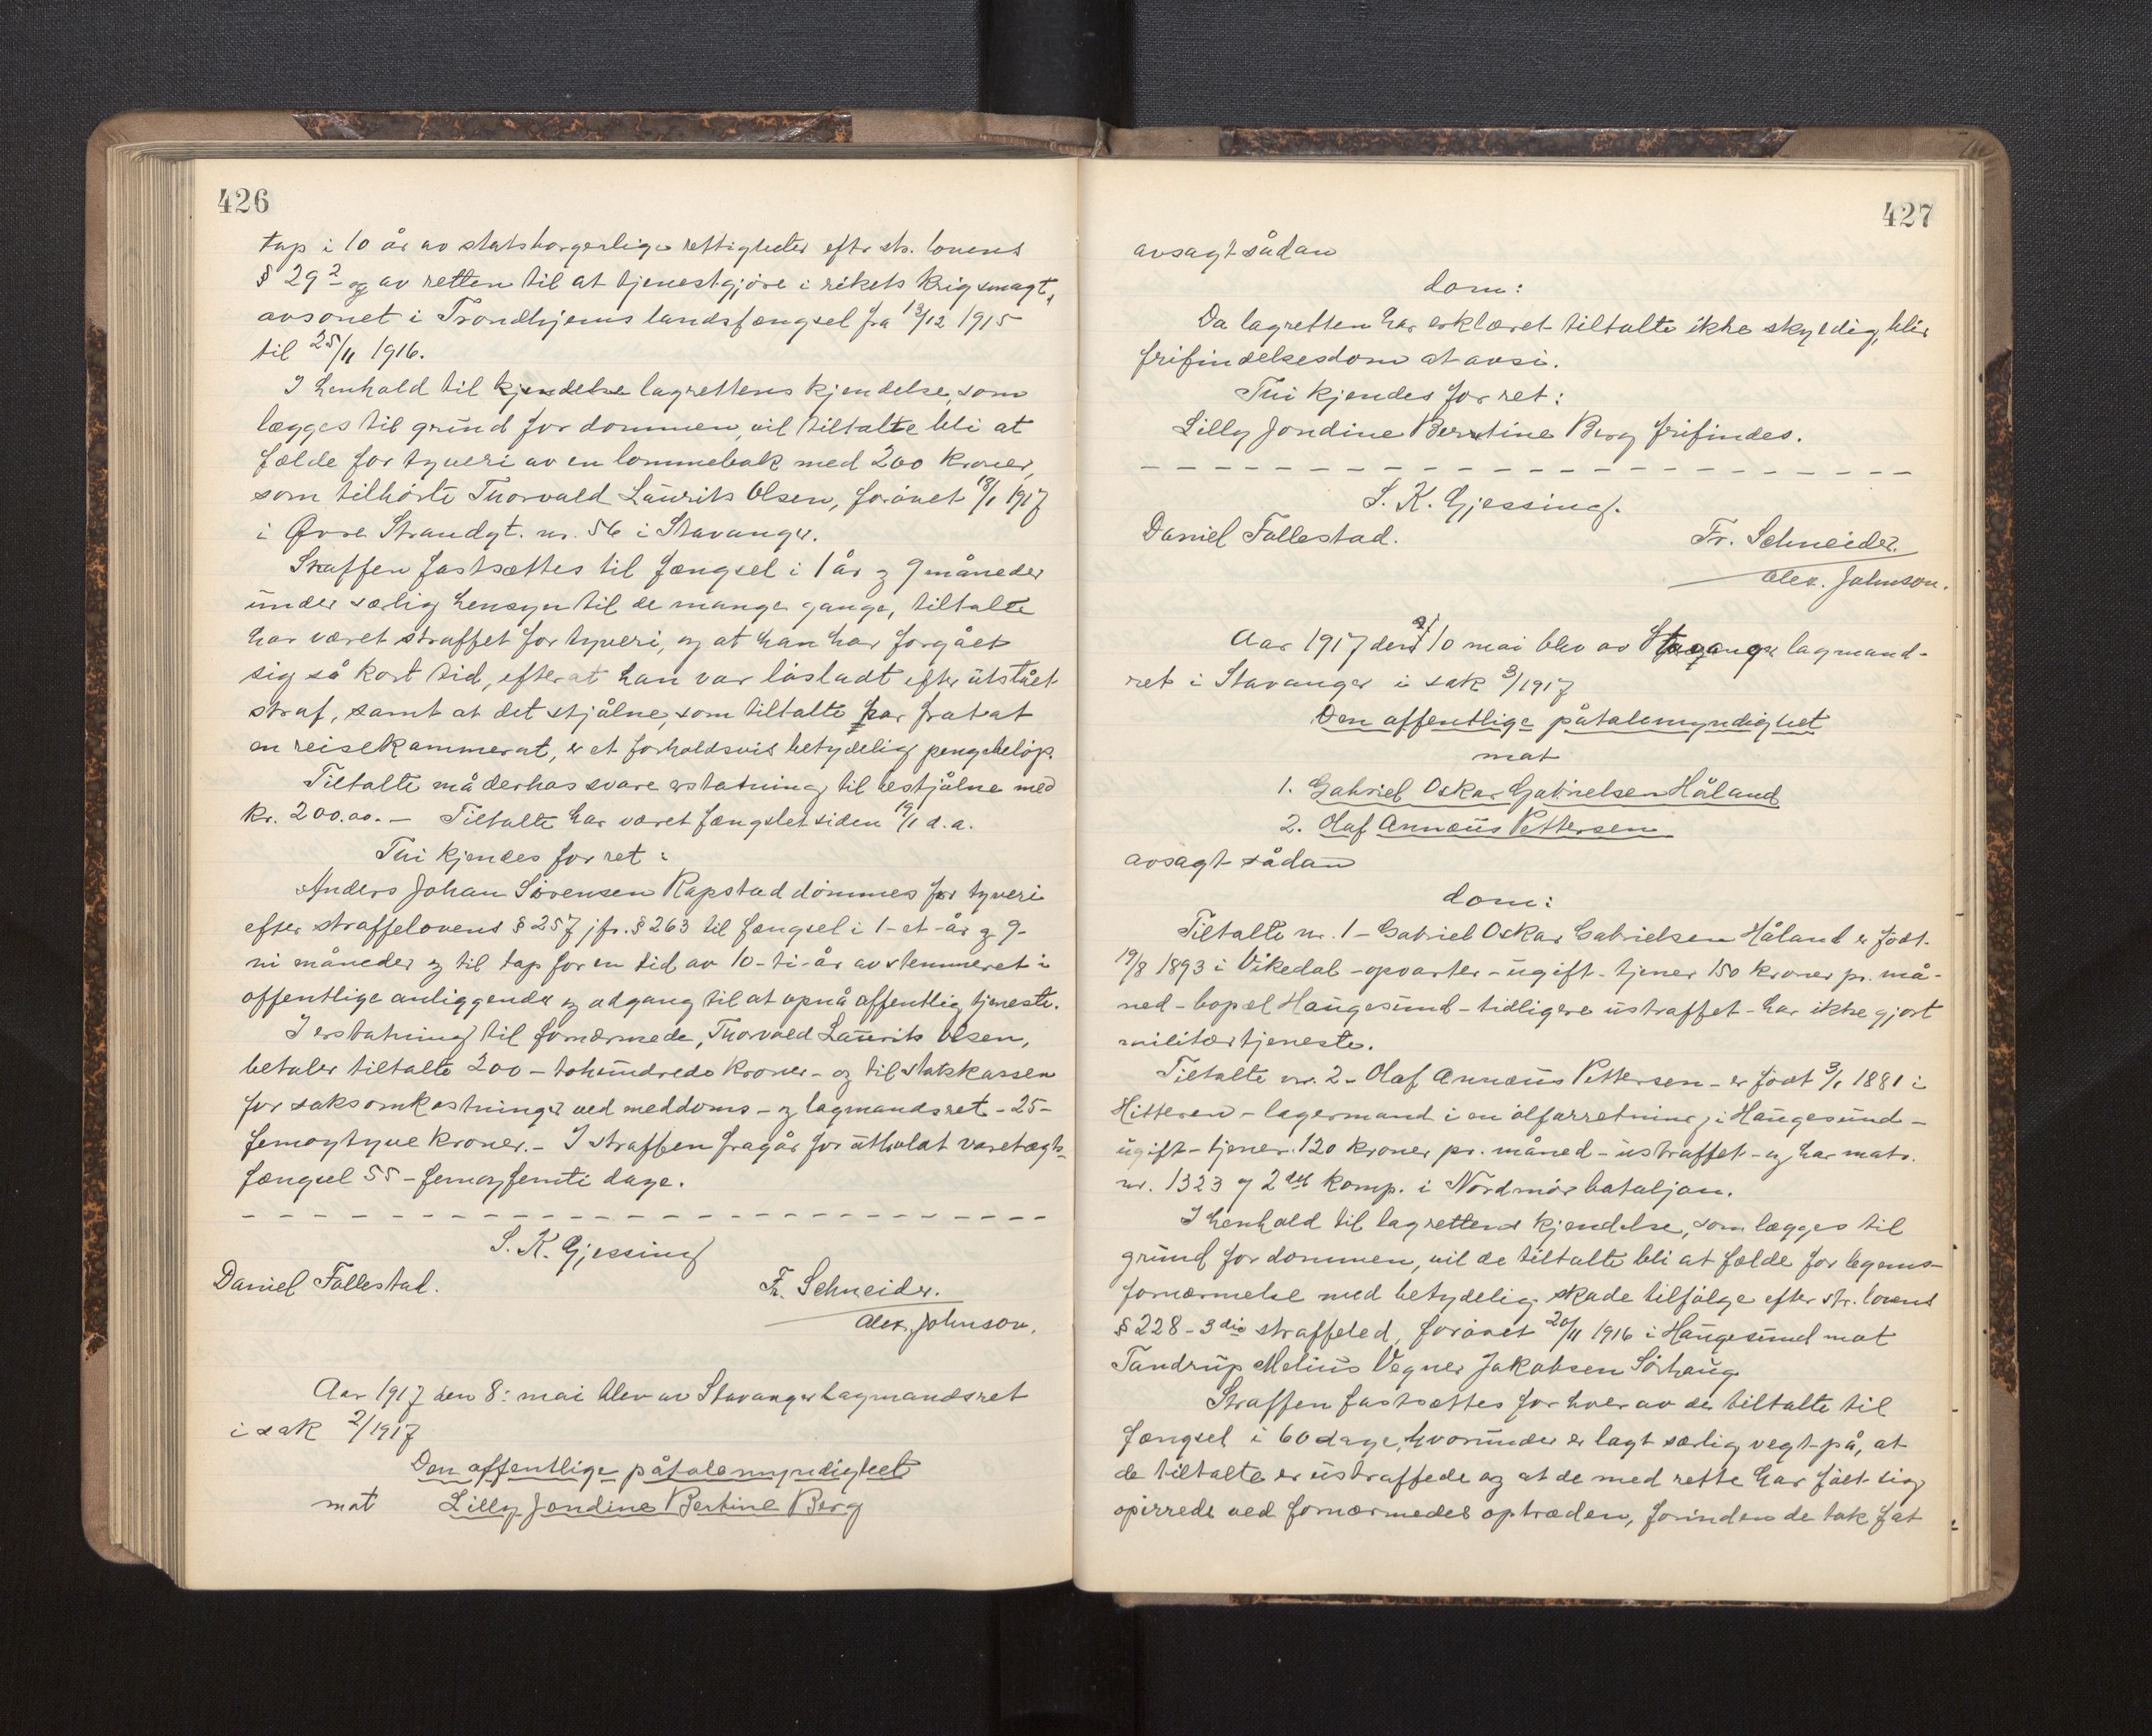 426
tap i 10 år av statsborgerlige rettigheter efter str. lovens
§ 29² og av retten til at tjenestgjøre i rikets krigsmagt,
avsonet i Trondhjems landsfængsel fra 13/12 1915
til 25/11 1916.
I henhold til kjendelse lagrettens kjendelse, som
lægges til grund for dommen, vil tiltalte bli at
fælde for tyveri av en lommebok med 200 kroner,
som tilhørte Thorvald Laurits Olsen, forøvet 18/1 1917
i Øvre Strandgt. nr. 56 i Stavanger.
Straffen fastsættes til fængsel i 1 år og 9 måneder
under særlig hensyn til de mange gange, tiltalte
har været straffet for tyveri, og at han har forgået
sig så kort tid, efterat han var løsladt efter utstået
straf, samt at det stjålne, som tiltalte har fratat
en reisekammerat, er et forholdsvis betydelig pengebeløp.
Tiltalte må derhos svare erstatning til bestjålne med
kr. 200.00. – Tiltalte har været fængslet siden 19/1 d. a.
Thi kjendes for ret:
Anders Johan Sørensen Rapstad dømmes for tyveri
efter straffelovens § 257 jfr. § 263 til fængsel i 1- et -år og 9-
ni måneder og til tap for en tid av 10- ti -år av stemmeret i
offentlige anliggender og adgang til at opnå offentlig tjeneste.
I erstatning til fornærmede, Thorvald Laurits Olsen,
betaler tiltalte 200 – tohundrede kroner – og til statskassen
for saksomkostninger ved meddoms – og lagmandsret – 25 –
femogtyve kroner. – I straffen fragår for utholdt varetægts-
fængsel 55 – femogfemti dage.
S. K. Gjessing
Daniel Follestad. Fr. Schneider.
Alex. Johnson.
Aar 1917 den 8: mai blev av Stavanger lagmandsret
i sak 2/1917
Den offentlige påtalemyndighet
mot Lilly Jondine Bertine Berg
427
avsagt sådan
dom:
Da lagretten har erklæret tiltalte ikke skyldig, blir
frifindelsesdom at avsi.
Thi kjendes for ret:
Lilly Jondine Berntine Berg frifindes.
S. K. Gjessing.
Daniel Follestad. Fr. Schneider.
Alex. Johnson.
Aar 1917 den 10 mai blev av Stavanger lagmand-
ret i Stavanger i sak 3/1917
Den offentlige påtalemyndighet
mot
1. Gabriel Oskar Gabrielsen Håland
2. Olaf Annæus Pettersen
avsagt sådan
dom:
Tiltalte nr. 1 – Gabriel Oskar Gabrielsen Håland er født
19/8 1893 i Vikedal – opvarter – ugift – tjener 150 kroner pr. må-
ned – bopæl Haugesund – tidligere ustraffet – har ikke gjort
militærtjeneste.
Tiltalte nr. 2 – Olaf Annæus Pettersen – er født 3/1 1881 i
Hitteren – lagermand i en ølforretning i Haugesund –
ugift – tjener 120 kroner pr. måned – ustraffet – og har matr.
nr. 1323 og 2det komp. i Nordmør bataljon.
I henhold til lagrettens kjendelse, som lægges til
grund for dommen, vil de tiltalte bli at fælde for legems-
fornærmelse med betydelig skade tilfølge efter str. lovens
§ 228 – 3die straffeled, forøvet 20/11 1916 i Haugesund mot
Tandrup Melius Vegner Jakobsen Sørhaug
Straffen fastsættes for hver av de tiltalte til
fængsel i 60 dage, hvorunder er lagt særlig vegt på, at
de tiltalte er ustraffede og at de med rette har følt sig
opirrede ved fornærmedes optræden, forinden de tok fat